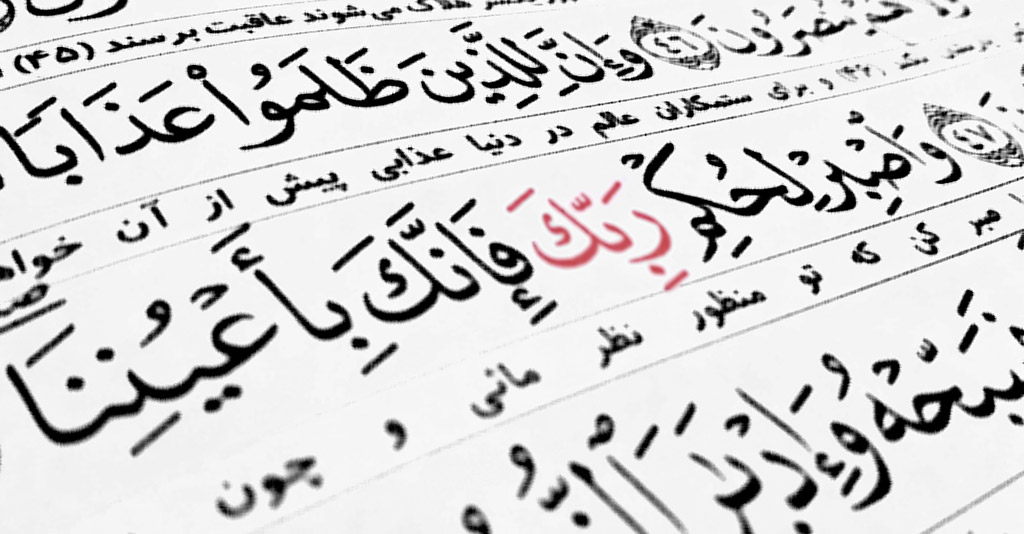 می شوند عاقبت برسند (۴۵)
يُنْصَرُونَ ﴿٤٦﴾ وَإِنَّ لِلَّذِينَ ظَلَمُوا عَذَابًا
(۴۶) و برای ستمکاران عالم در دنیا عذابی پیش از آن
﴿٤٧﴾ وَاصْبِرْ لِحُكْمِ رَبِّكَ فَإِنَّكَ بِأَعْيُنِنَا
صبر کن که تو منظور نظر مائی و چون
فَسَبِّحْهُ وَإِدْبَارَ